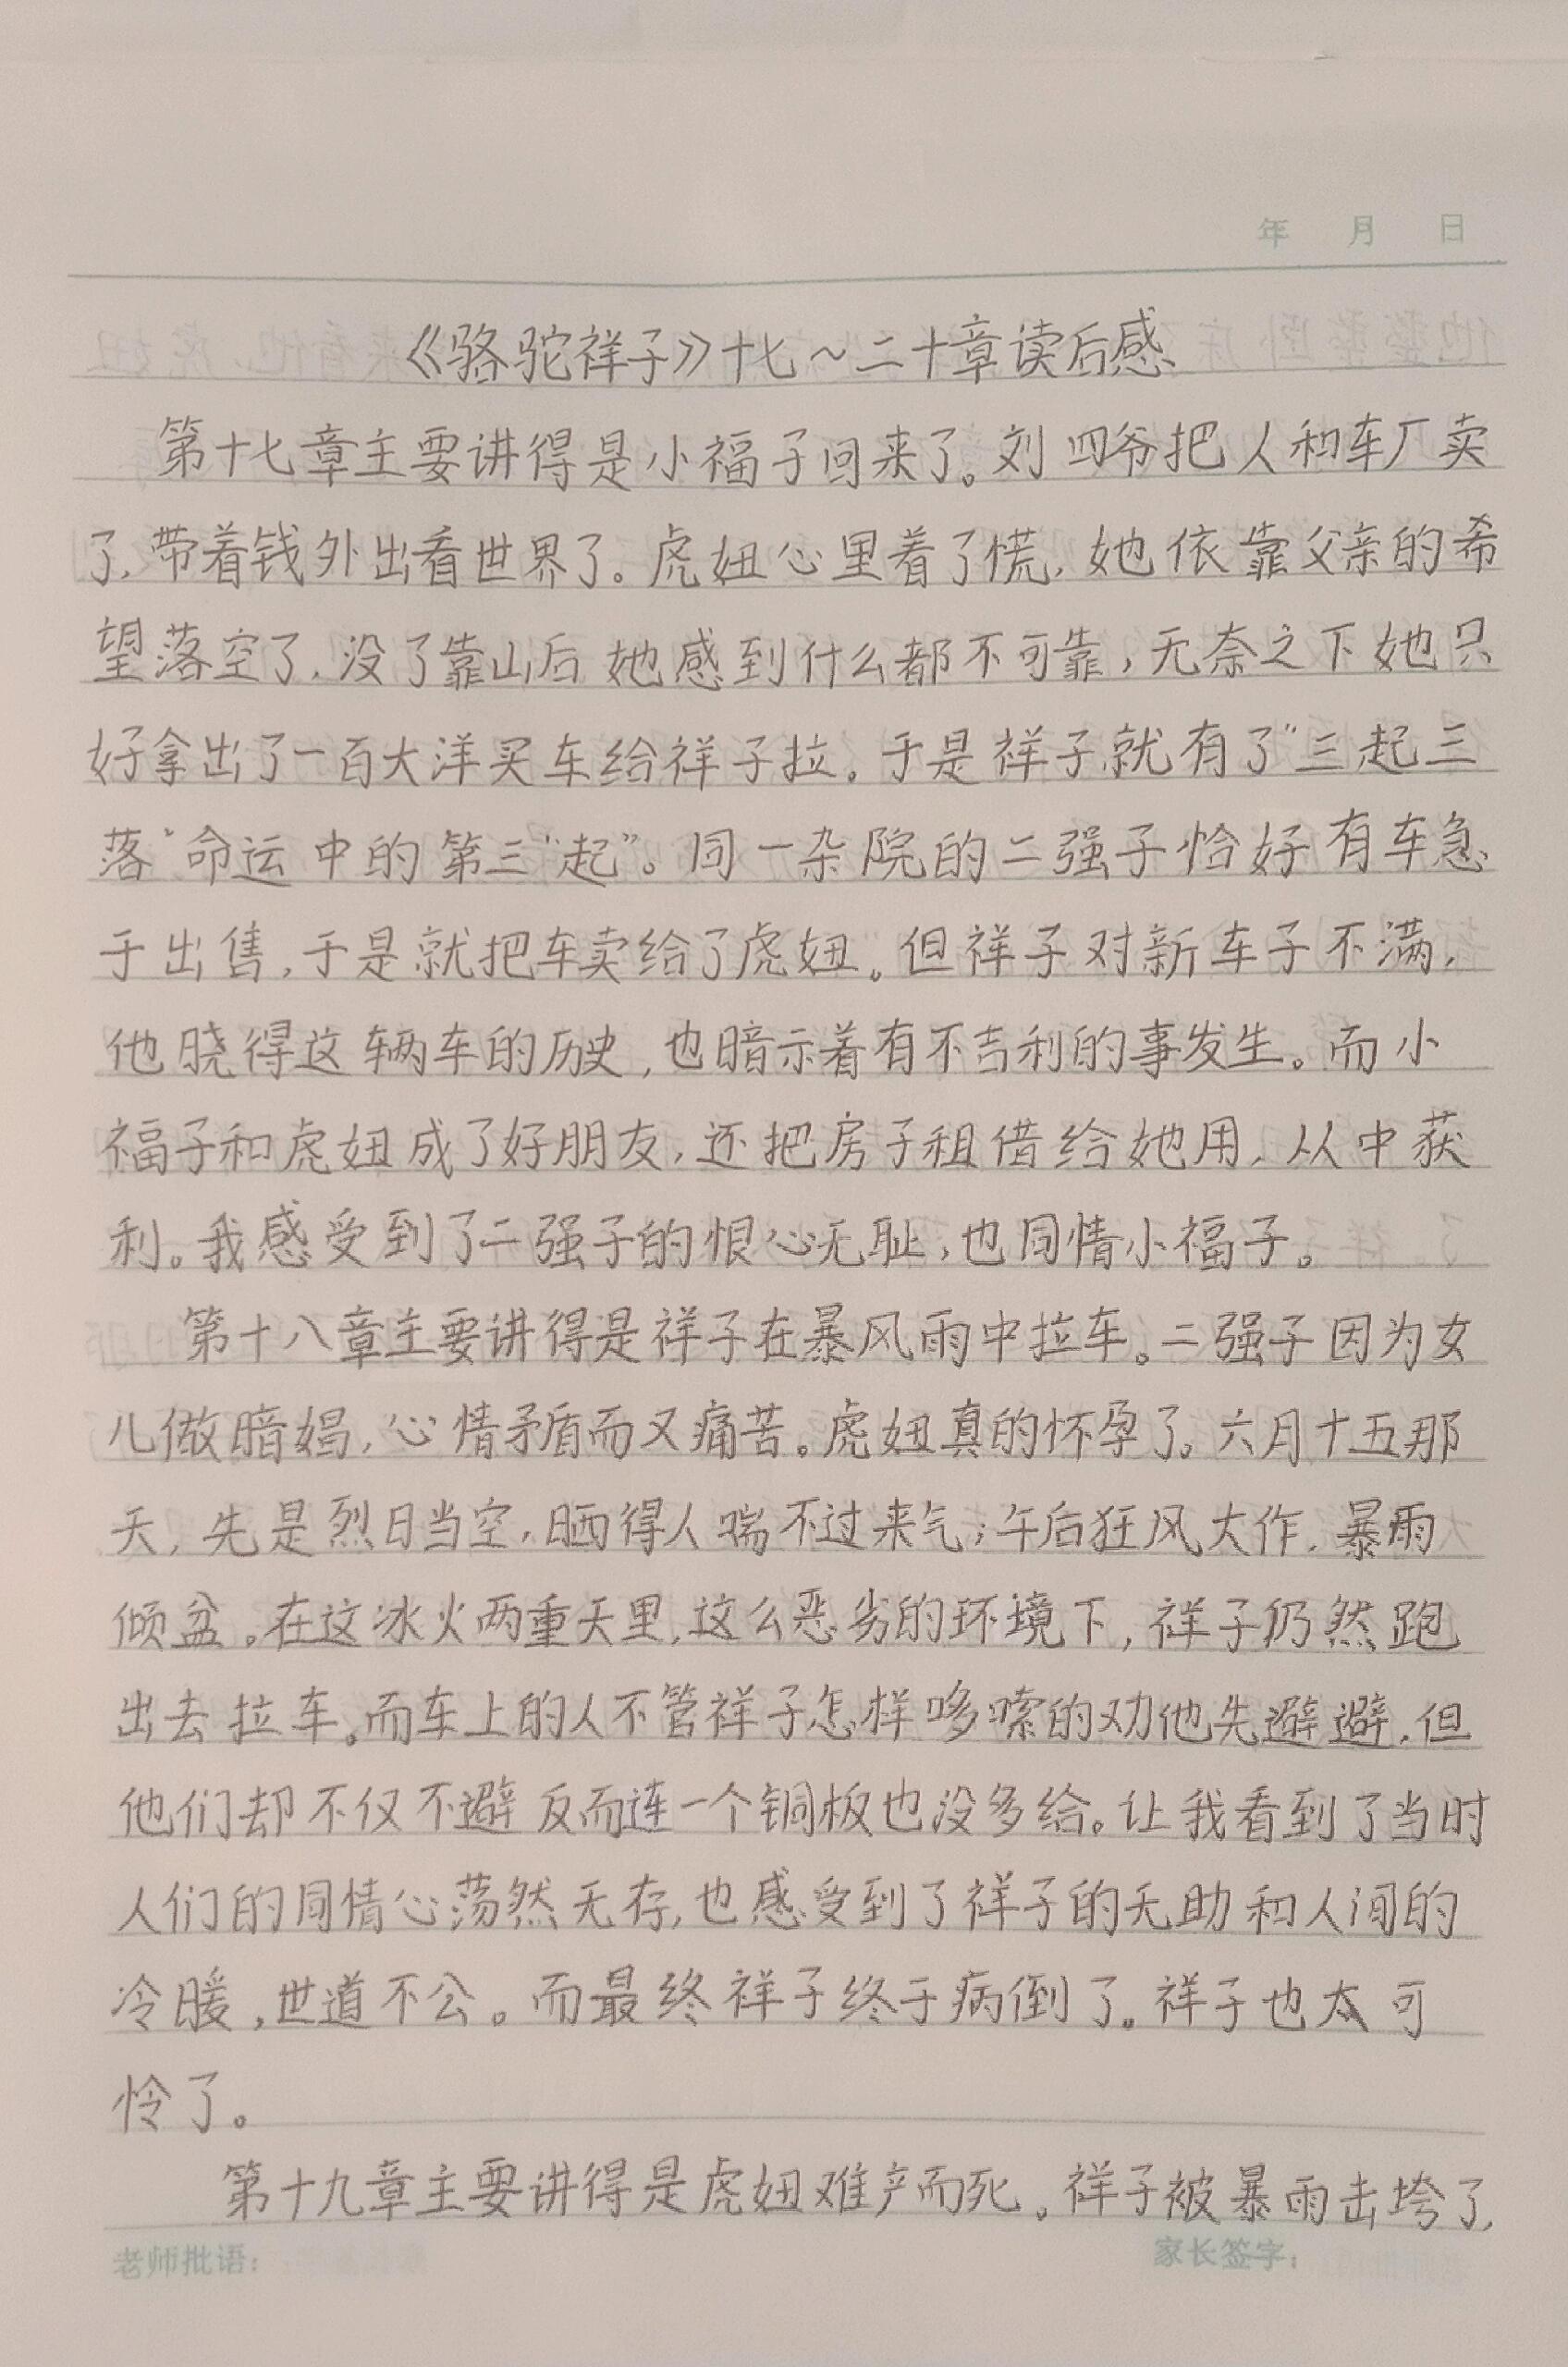 年 月 日
《骆驼祥子》十七～二十章读后感
第十七章主要讲得是小福子回来了。刘四爷把人和车厂卖
了,带着钱外出看世界了。虎妞心里着了慌,她依靠父亲的希
望落空了,没了靠山后她感到什么都不可靠,无奈之下她只
好拿出了一百大洋买车给祥子拉。于是祥子就有了"三起三
落"命运中的第三"起"。同一杂院的二强子恰好有车急
于出售,于是就把车卖给了虎妞。但祥子对新车子不满,
他晓得这辆车的历史,也暗示着有不吉利的事发生。而小
福子和虎妞成了好朋友,还把房子租借给她用,从中获
利。我感受到了二强子的恨心无耻,也同情小福子。
第十八章主要讲得是祥子在暴风雨中拉车。二强子因为女
儿做暗娼,心情矛盾而又痛苦。虎妞真的怀孕了。六月十五那
天,先是烈日当空,晒得人喘不过来气;午后狂风大作,暴雨
倾盆。在这冰火两重天里,这么恶劣的环境下,祥子仍然跑
出去拉车。而车上的人不管祥子怎样哆嗦的劝他先避避,但
他们却不仅不避反而连一个铜板也没多给。让我看到了当时
人们的同情心荡然无存,也感受到了祥子的无助和人间的
冷暖,世道不公。而最终祥子终于病倒了。祥子也太可
怜了。
第十九章主要讲得是虎妞难产而死。祥子被暴雨击垮了,
老师批语: 家长签字: